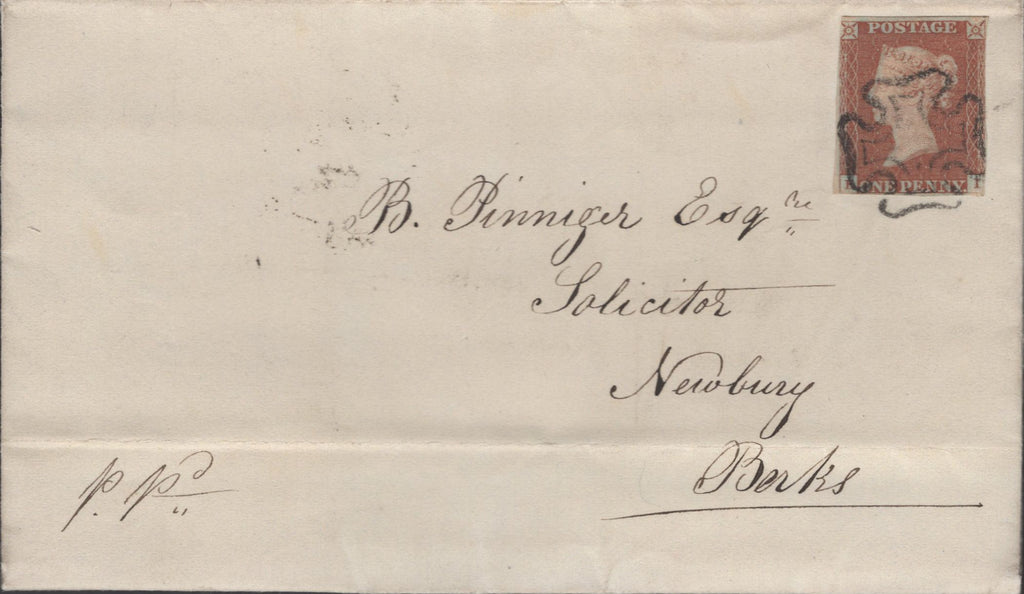 POSTAGE
ONE PENNY
B. Pinniger Esqre
Solicitor
Newbury
Berks
p. pd